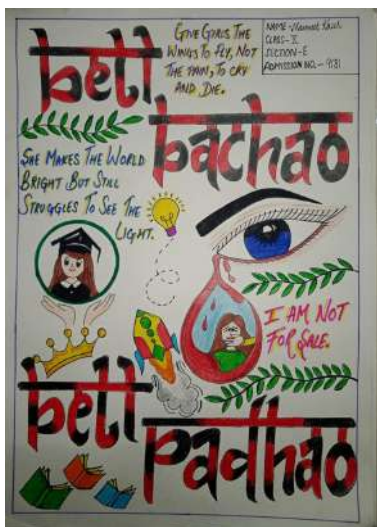 GIVE GIRLS THE
WINGS TO FLY, NOT
THE PAIN, TO CRY
AND DIE.
NAME -
CLASS - X
SECTION - E
ADMISSION NO. -
beti
bachao
SHE MAKES THE WORLD
BRIGHT BUT STILL
STRUGGLES TO SEE THE
LIGHT.
I AM NOT
FOR SALE.
beti
padhao